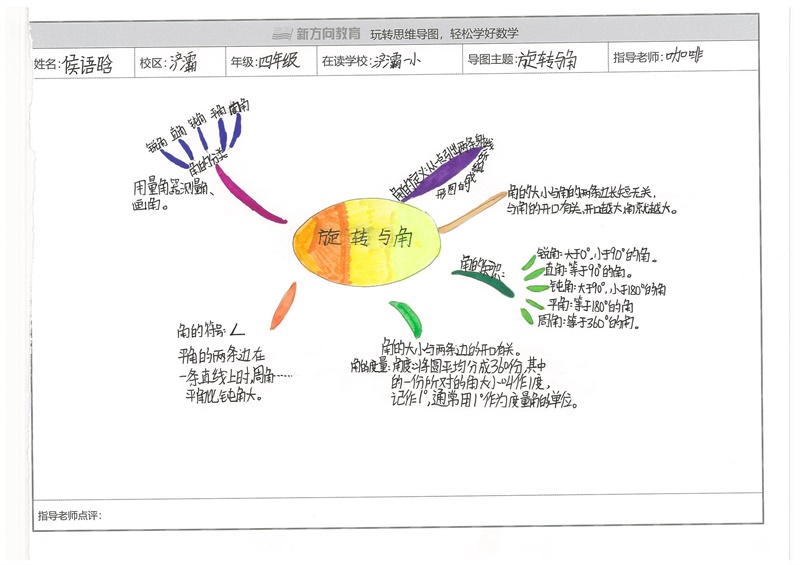 新方向教育 玩转思维导图，轻松学好数学
姓名：侯语晗 校区：浐灞 年级：四年级 在读学校：浐灞一小 导图主题：旋转与角 指导老师：咖啡
锐角 直角 钝角 平角 周角
角的分类
用量角器测量角、
画角。
角的定义：从一点引出两条射线
形图的
角的大小与角的两条边长短无关，
与角的开口有关，开口越大，角就越大。
旋转与角
锐角：大于0°，小于90°的角。
直角：等于90°的角。
钝角：大于90°，小于180°的角
平角：等于180°的角
周角：等于360°的角。
角的符号：∠
平角的两条边在
一条直线上时，周角……
平角比钝角大。
角的大小与两条边的开口有关。
角的度量：角度：将圆平均分成360份，其中
的一份所对的角大小叫作1度，
记作1°，通常用1°作为度量角的单位。
指导老师点评：